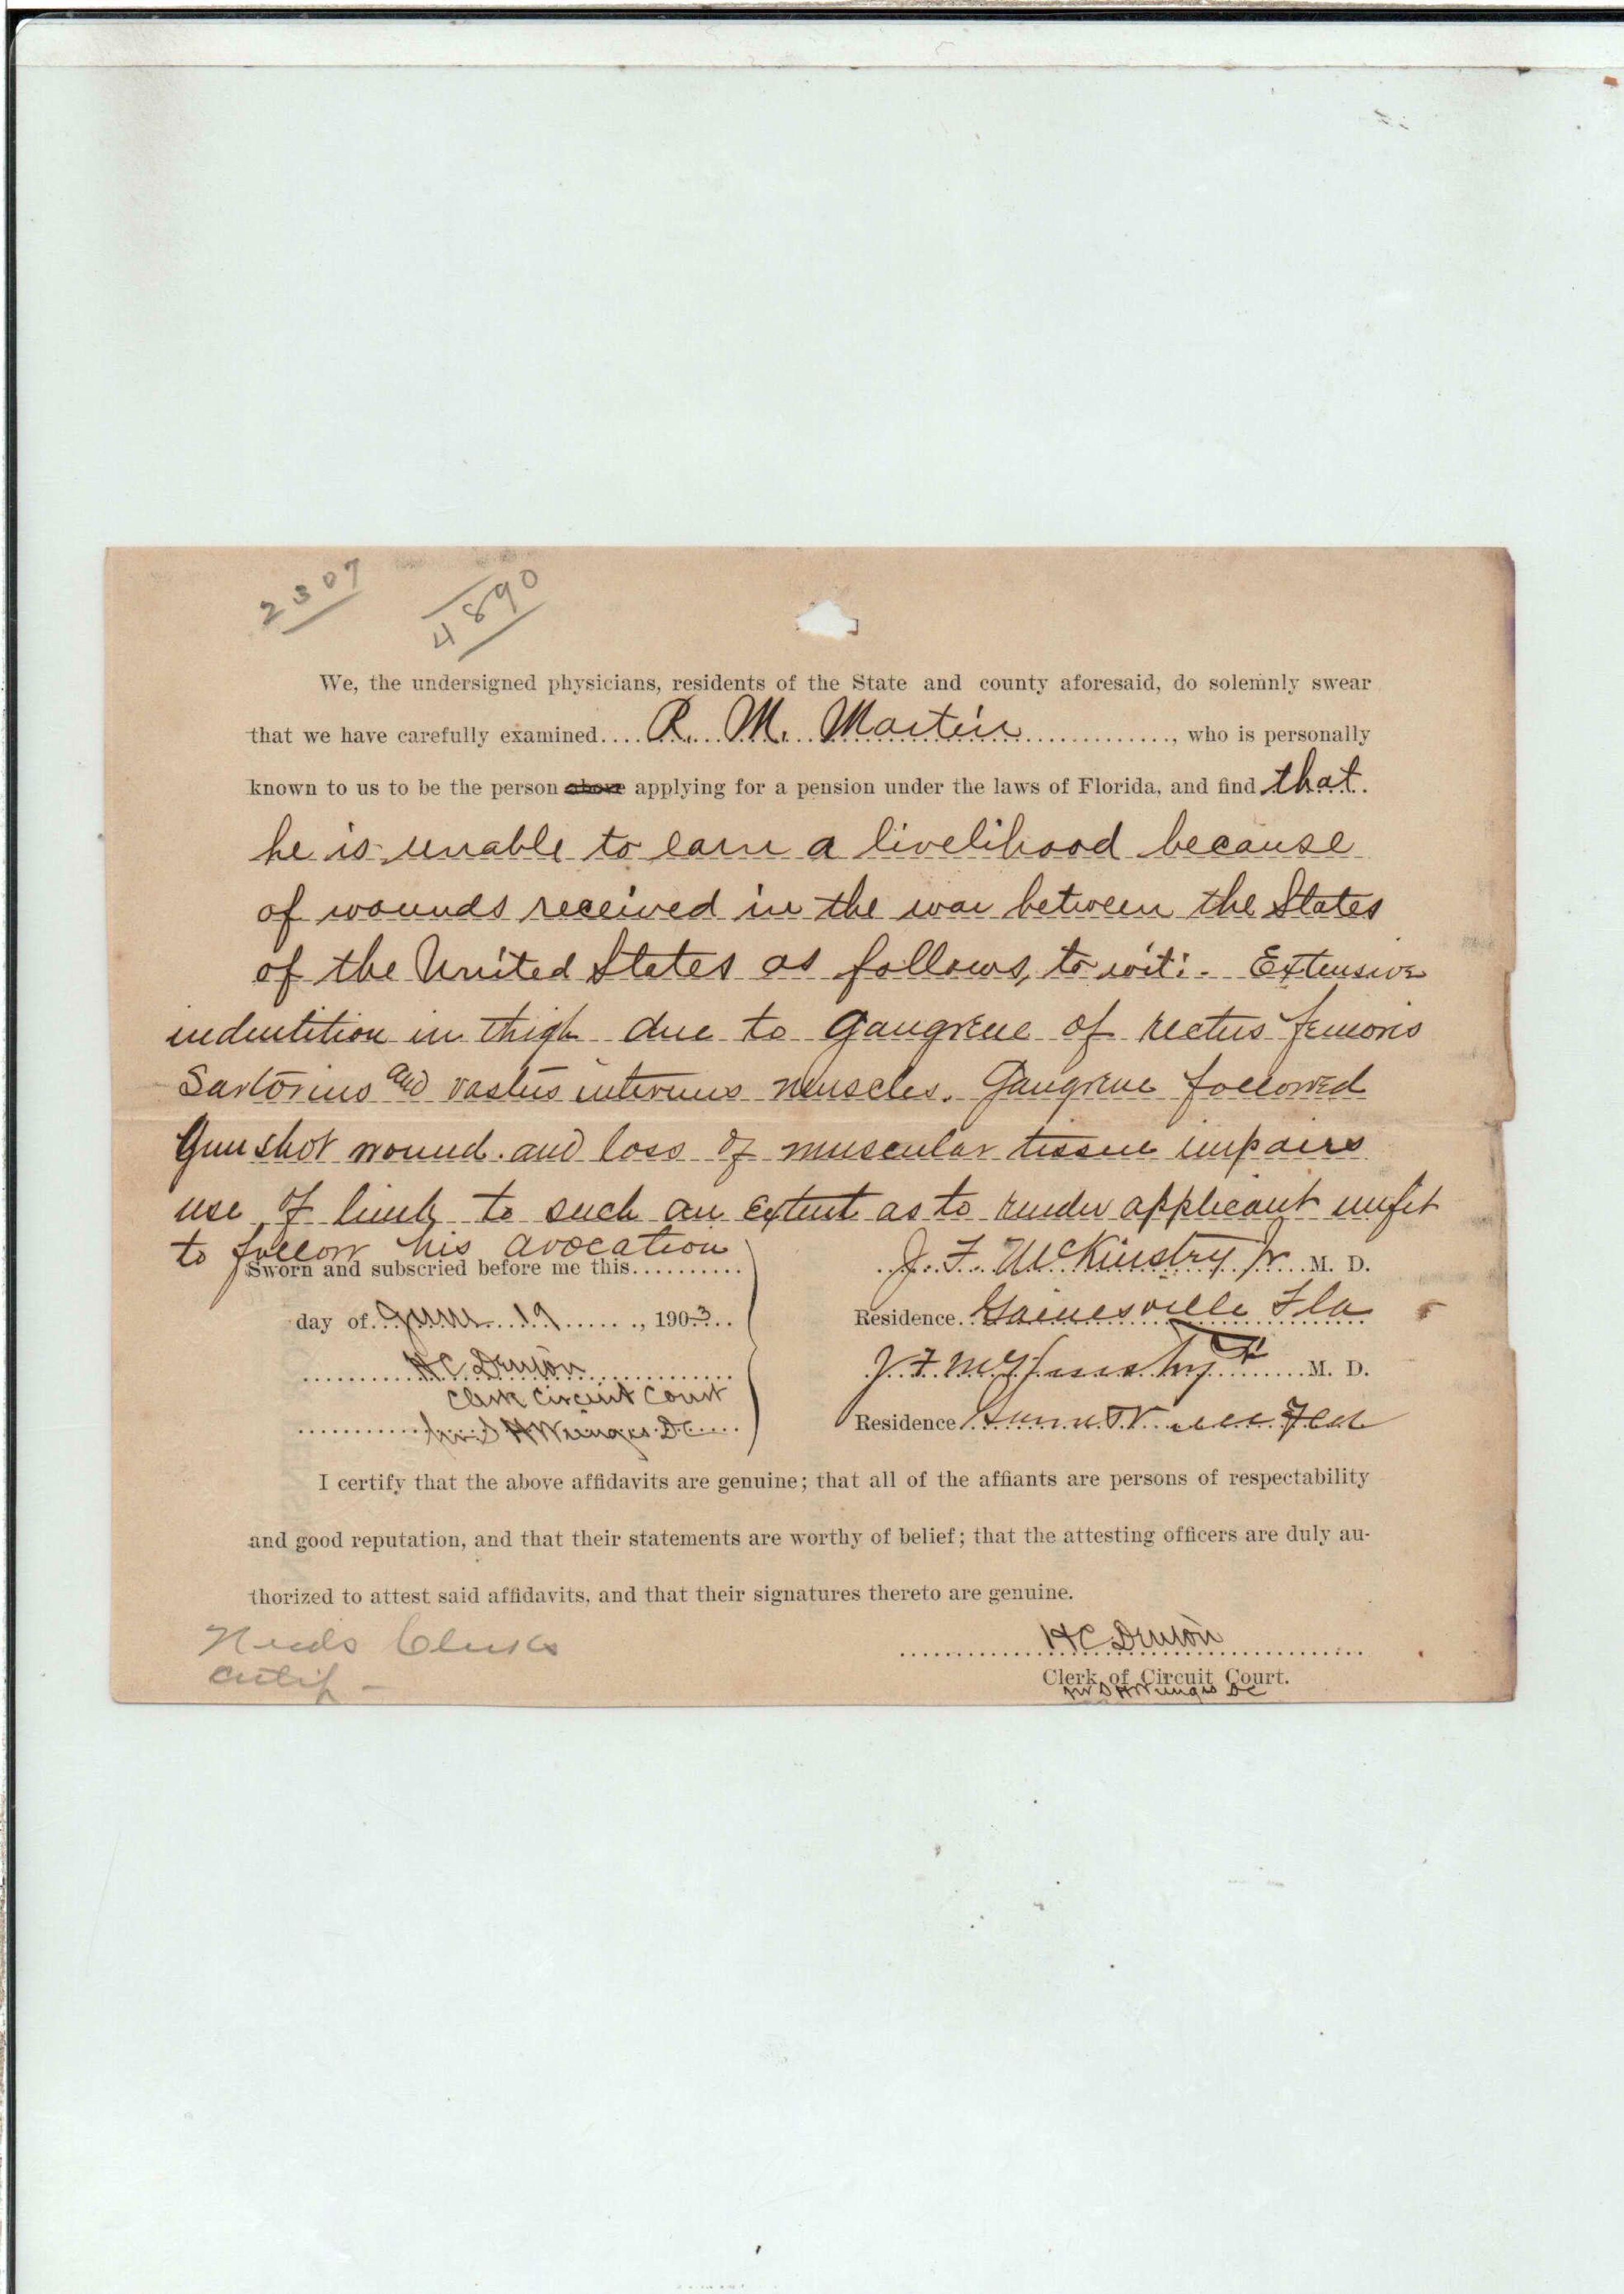 2307
4890
We, the undersigned physicians, residents of the State and county aforesaid, do solemnly swear
that we have carefully examined.... R. M. Martin ............., who is personally
known to us to be the person above applying for a pension under the laws of Florida, and find that
he is unable to earn a livelihood because
of wounds received in the war between the States
of the United States as follows, to wit:- Extensive
indentition in thigh due to gangrene of rectus femoris
Sartorius and vastus internus muscles. Gangrene followed
Gun shot wound. and loss of muscular tissue impairs
use of limb to such an extent as to render applicant unfit
to follow his avocation
Sworn and subscried before me this..........
day of June 19, 1903
H C Denton
Clerk Circuit Court
D.C.
J. F. McKinstry Jr M. D.
Residence Gainesville Fla
J F McKinstry Sr M. D.
Residence Gainesville Fla
I certify that the above affidavits are genuine; that all of the affiants are persons of respectability
and good reputation, and that their statements are worthy of belief; that the attesting officers are duly au-
thorized to attest said affidavits, and that their signatures thereto are genuine.
Needs Clerks
certif -
H C Denton
Clerk of Circuit Court.
DC